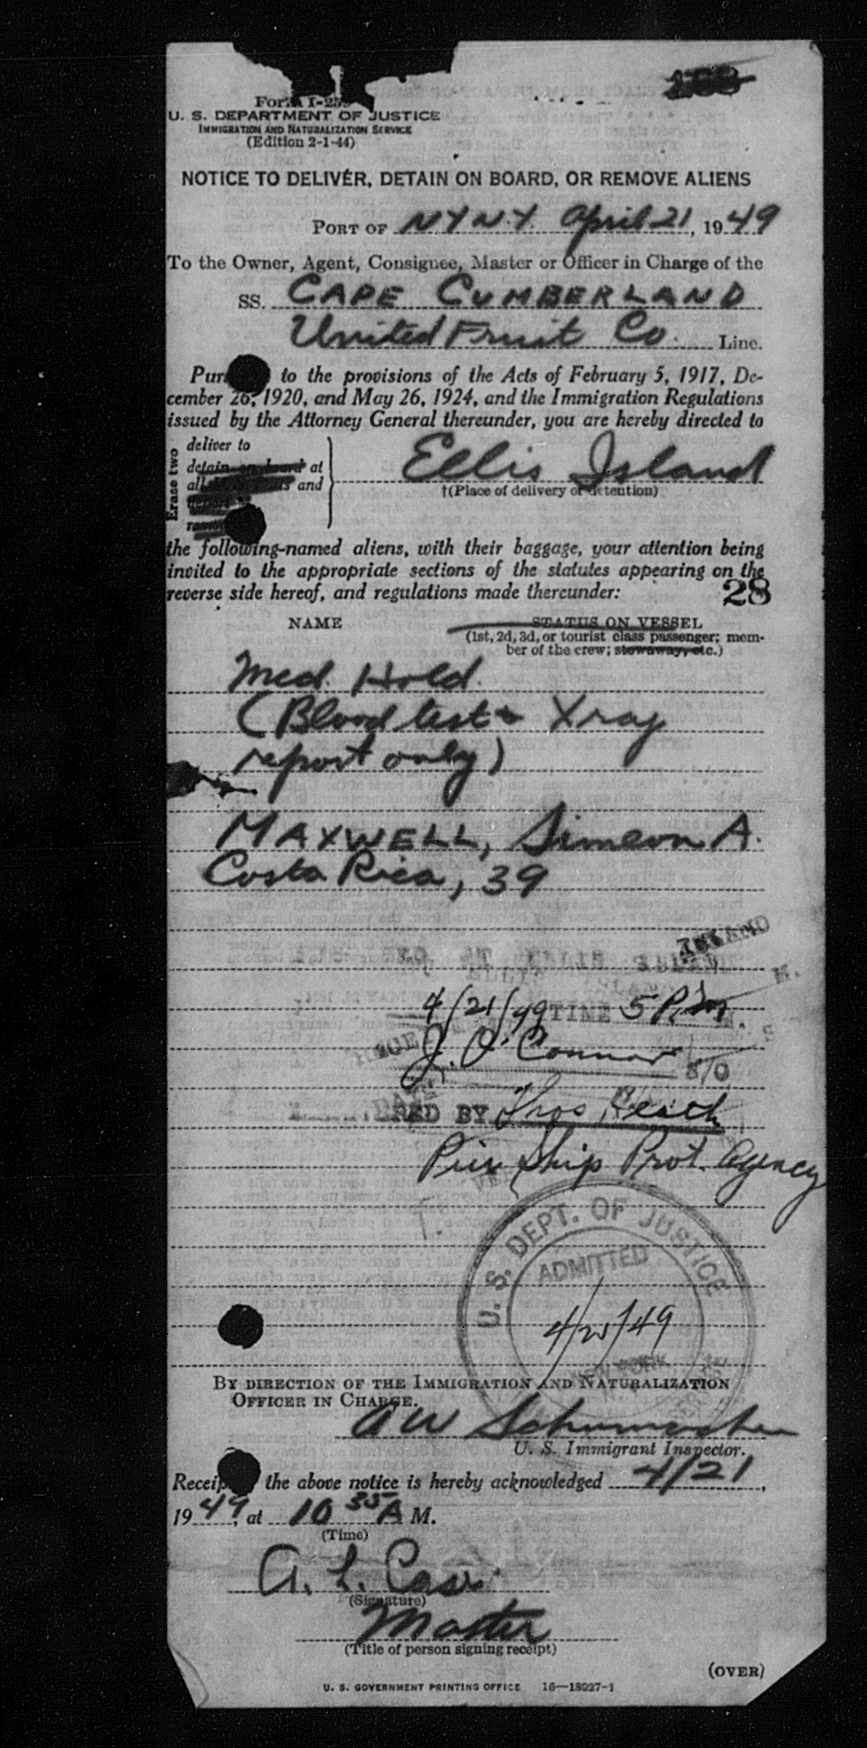 Form I-259
U. S. DEPARTMENT OF JUSTICE
IMMIGRATION AND NATURALIZATION SERVICE
(Edition 2-1-44)
NOTICE TO DELIVER, DETAIN ON BOARD, OR REMOVE ALIENS
PORT OF NY N.Y. April 21, 1949
To the Owner, Agent, Consignee, Master or Officer in Charge of the
SS. CAPE CUMBERLAND
United Fruit Co. Line.
to the provisions of the Acts of February 5, 1917, De-
cember 26, 1920, and May 26, 1924, and the Immigration Regulations
issued by the Attorney General thereunder, you are hereby directed to
Erase two
deliver to
detain on board at
and
Ellis Island
†(Place of delivery or detention)
the following-named aliens, with their baggage, your attention being
invited to the appropriate sections of the statutes appearing on the
reverse side hereof, and regulations made thereunder:
28
NAME STATUS ON VESSEL
(1st, 2d, 3d, or tourist class passenger; mem-
ber of the crew; stowaway, etc.)
Med. Hold
(Blood test & Xray
report only)
MAXWELL, Simeon A.
Costa Rica, 39
ISLAND
4/21/49 TIME 5 P.M.
J. O'Connor
BY
Pier Ship Prot. Agency
U. S. DEPT. OF JUSTICE
ADMITTED
NEW YORK
BY DIRECTION OF THE IMMIGRATION AND NATURALIZATION
OFFICER IN CHARGE.
A W Schumacher
U. S. Immigrant Inspector.
the above notice is hereby acknowledged 4/21,
1949, at 10 35 A M.
(Time)
A. L.
(Signature)
Master
(Title of person signing receipt)
(OVER)
U. S. GOVERNMENT PRINTING OFFICE 16—18927-1